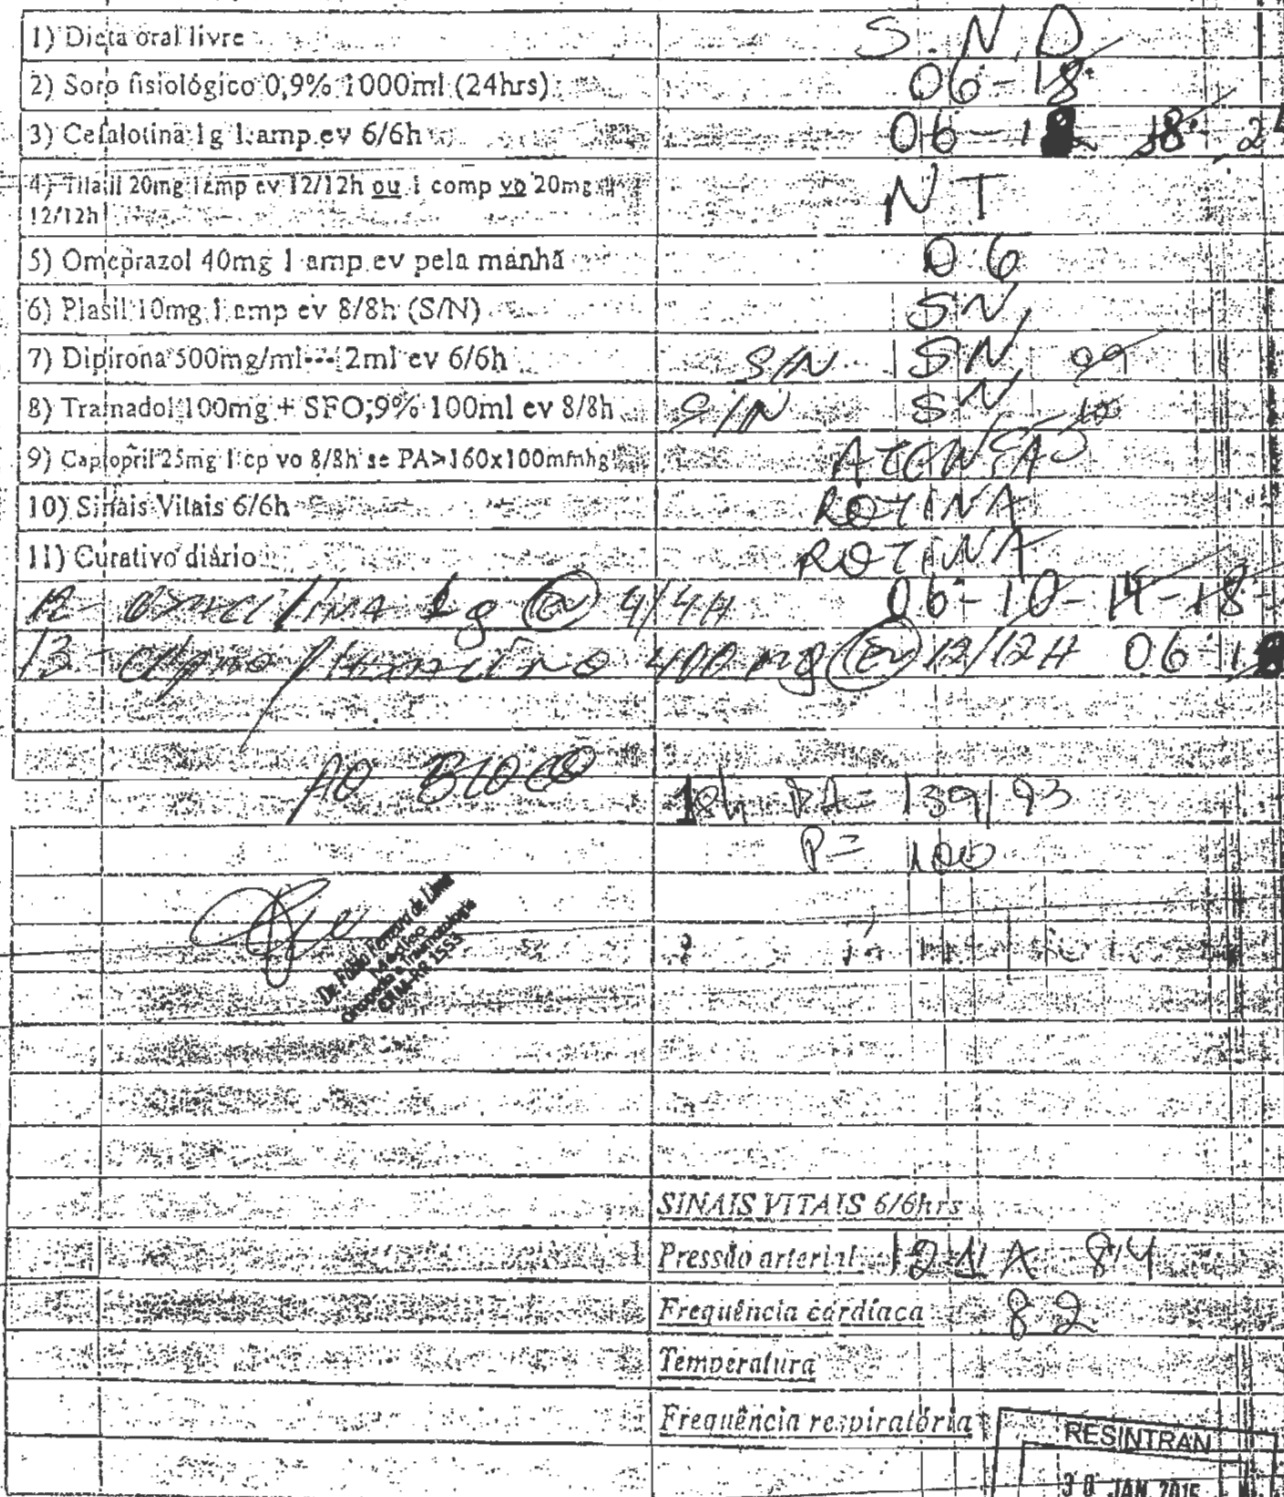 1) Dieta oral livre S.N.D
2) Soro fisiológico 0,9% 1000ml (24hrs) 06-18
3) Cefalotina 1g 1 amp ev 6/6h 06-12 18 24
4) Tilatil 20mg 1 amp ev 12/12h ou 1 comp vo 20mg NT
12/12h
5) Omeprazol 40mg 1 amp ev pela manhã 06
6) Plasil 10mg 1 amp ev 8/8h (S/N) SN
7) Dipirona 500mg/ml---2ml ev 6/6h S/N SN 09
8) Tramadol 100mg + SF0,9% 100ml ev 8/8h S/N SN 10
9) Captopril 25mg 1 cp vo 8/8h se PA>160x100mmhg ATENSÃO
10) Sinais Vitais 6/6h ROTINA
11) Curativo diário ROTINA
12- oxacilina 1g EV 4/4H 06-10-14-18-
13- 400 mg EV 12/12H 06-18
AO BLOCO
18h PA= 139/93
P= 100
Ferreira de Lima
Médico
Ortopedia e Traumatologia
CRM-RR 1553
SINAIS VITAIS 6/6hrs
Pressão arterial 121 X 84
Frequência cardíaca 82
Temperatura
Frequência respiratória
RESINTRAN
30 JAN. 2015